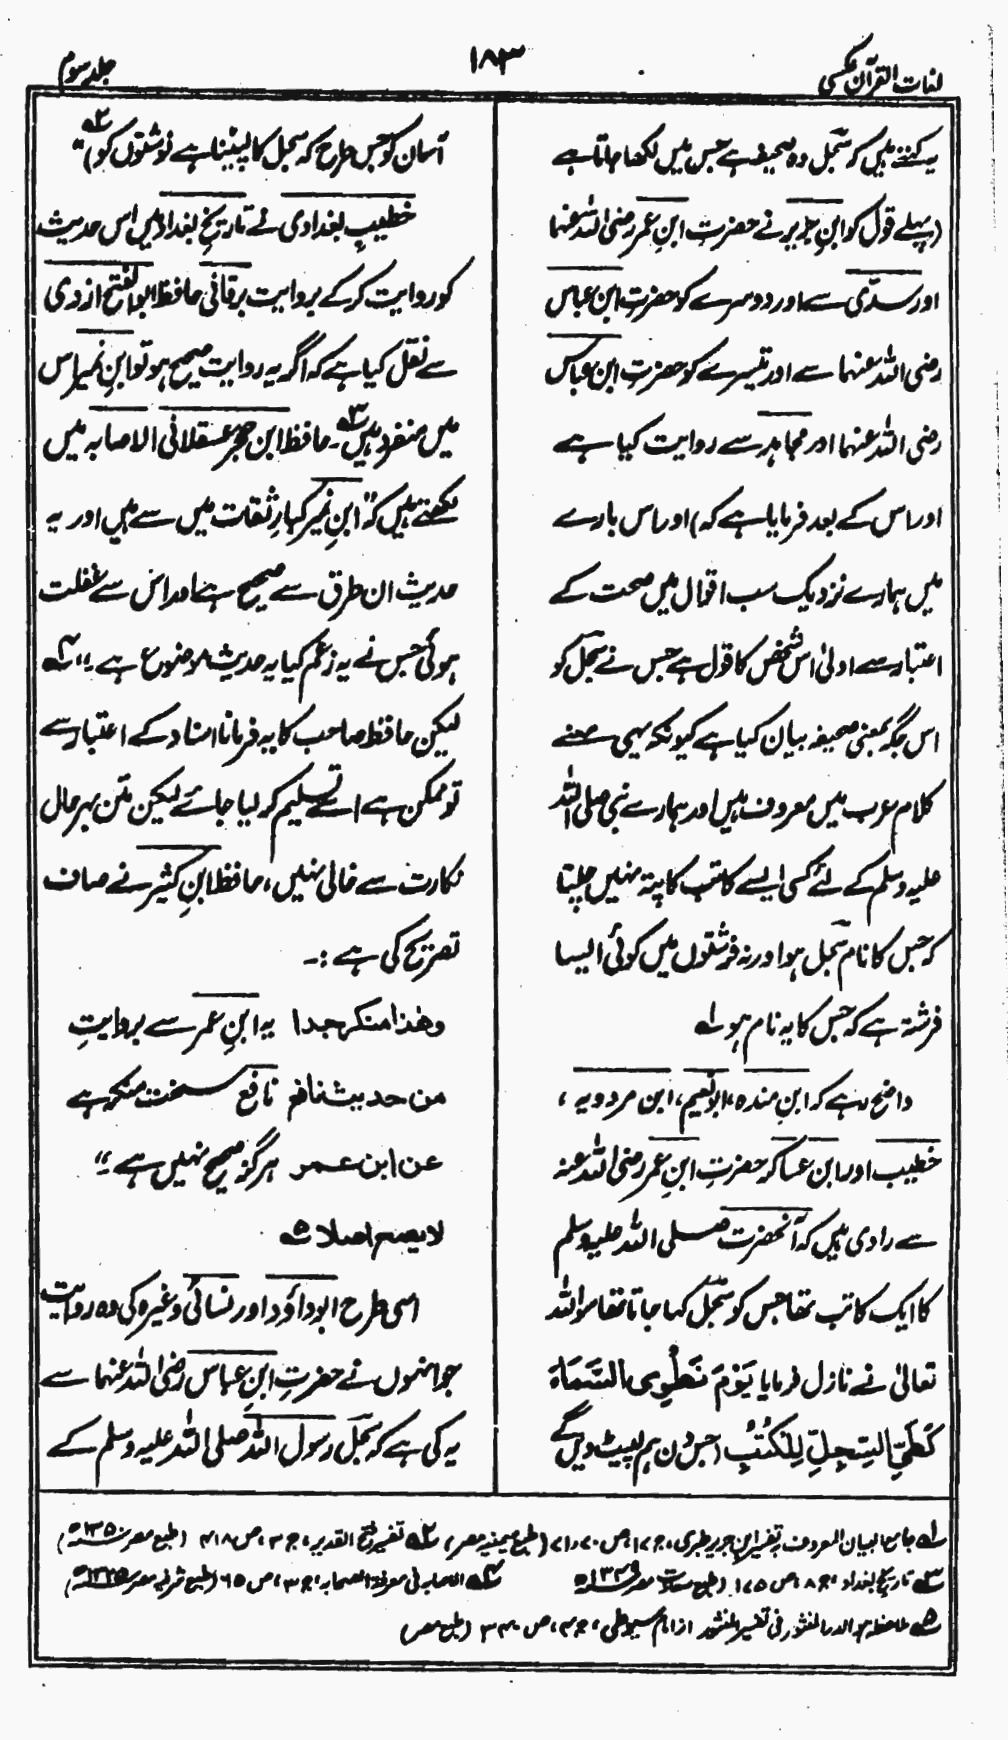 لغات القرآن عکسی
۱۸۳
جلد سوم
یہ کہتے ہیں کہ سجل وہ صحیفہ ہے جس میں لکھا جاتا ہے
(پہلے قول کو ابنِ جریر نے حضرت ابنِ عمر رضی اللہ عنہما
اور سدّی سے اور دوسرے کو حضرت ابن عباس
رضی اللہ عنہما سے اور تیسرے کو حضرت ابن عباس
رضی اللہ عنہما اور مجاہد سے روایت کیا ہے
اور اس کے بعد فرمایا ہے کہ) اور اس بارے
میں ہمارے نزدیک سب اقوال میں صحت کے
اعتبار سے اولیٰ اس شخص کا قول ہے جس نے سجل کو
اس جگہ بمعنی صحیفہ بیان کیا ہے کیونکہ یہی معنے
کلام عرب میں معروف ہیں اور ہمارے نبی صلی اللہ
علیہ وسلم کے لئے کسی ایسے کاتب کا پتہ نہیں چلتا
کہ جس کا نام سجل ہو اور نہ فرشتوں میں کوئی ایسا
فرشتہ ہے کہ جس کا یہ نام ہو ۱ہ
واضح رہے کہ ابنِ مندہ، ابو نعیم، ابن مردویہ،
خطیب اور ابن عساکر حضرت ابنِ عمر رضی اللہ عنہ
سے راوی ہیں کہ آنحضرت صلی اللہ علیہ وسلم
کا ایک کاتب تھا جس کو سجل کہا جاتا تھا سو اللہ
تعالیٰ نے نازل فرمایا یَوْمَ نَطْوِی السَّمَاءَ
کَطَیِّ السِّجِلِّ لِلْکُتُبِ (جس دن ہم لپیٹ دیں گے
آسمان کو جس طرح کہ سجل کا لپیٹنا ہے نوشتوں کو)" ۲ہ
خطیبِ بغدادی نے تاریخِ بغداد میں اس حدیث
کو روایت کرکے بروایت برقانی حافظ ابوالفتح ازدی
سے نقل کیا ہے کہ اگر یہ روایت صحیح ہو تو ابنِ نمیر اس
میں منفرد ہیں ۳ہ۔ حافظ ابن حجر عسقلانی الاصابہ میں
لکھتے ہیں کہ "ابنِ نمیر کبارِ ثقات میں سے ہیں اور یہ
حدیث ان طرق سے صحیح ہے اور اس سے غفلت
ہوئی جس نے یہ زعم کیا یہ حدیث موضوع ہے۔" ۴ہ
لیکن حافظ صاحب کا یہ فرمانا اسناد کے اعتبار سے
تو ممکن ہے اسے تسلیم کر لیا جائے لیکن متن بہر حال
نکارت سے خالی نہیں، حافظ ابنِ کثیر نے صاف
تصریح کی ہے :۔
وھذا منکر جدا یہ ابنِ عمر سے بروایتِ
من حدیث نافع نافع سخت منکر ہے
عن ابن عمر ہرگز صحیح نہیں ہے۔"
لا یصح اصلا ۵ہ
اسی طرح ابو داؤد اور نسائی وغیرہ کی وہ روایت
جو انہوں نے حضرتِ ابنِ عباس رضی اللہ عنہما سے
یہ کی ہے کہ سجل رسول اللہ صلی اللہ علیہ وسلم کے
۱ہ جامع البیان المعروف بتفسیر ابن جریر طبری، ج ۱۷، ص ۷۰، ۷۱ (طبع میمنیہ مصر) ۲ہ تفسیر فتح القدیر، ج ۳، ص ۴۱۸ (طبع مصر ۱۳۵۰ھ)
۳ہ تاریخ بغداد، ج ۸، ص ۱۷۵ (طبع سعادت مصر ۱۳۴۹ھ) ۴ہ الاصابہ فی معرفۃ الصحابہ، ج ۳، ص ۶۵ (طبع شرفیہ مصر ۱۳۲۵ھ)
۵ہ ملاحظہ ہو الدر المنثور فی تفسیر المنثور از امام سیوطی، ج ۴، ص ۳۴۰ (طبع مصر)